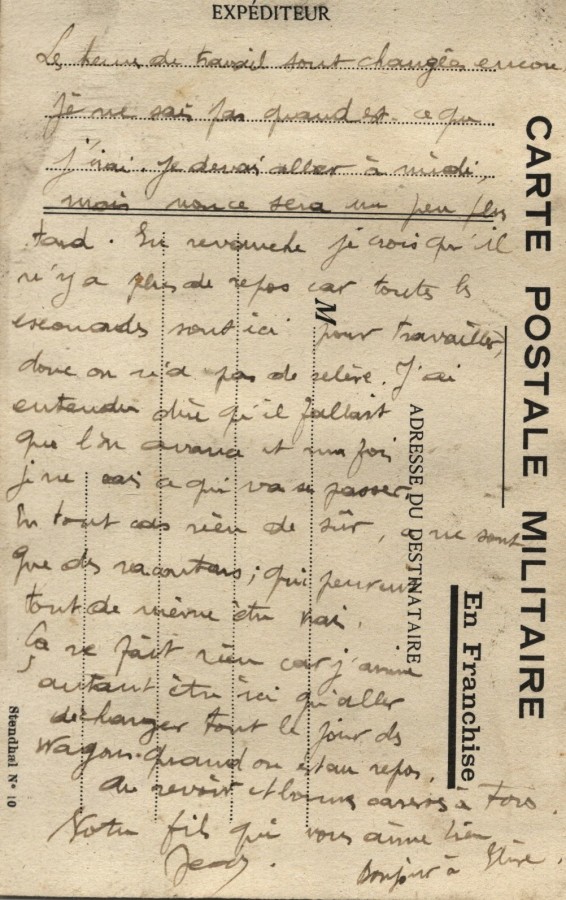 EXPÉDITEUR
Les heures de travail sont changées encore,
je ne sais pas quand est-ce que
j'irai. Je devais aller à midi,
mais non ce sera un peu plus
tard. En revanche je crois qu'il
n'y a plus de repos car toutes les
escouades sont ici pour travailler,
donc on n'a pas de relève. J'ai
entendu dire qu'il fallait
que l'on avance et une fois
je ne sais ce qui va se passer,
En tout cas rien de sûr, ce ne sont
que des racontars; qui peuvent
tout de même être vrai.
Ça ne fait rien car j'aime
autant être ici qu'aller
décharger tout le jour des
wagons quand on est au repos.
Au revoir et bonnes caresses à Tous.
Votre fils qui vous aime bien
Bonjour à
CARTE POSTALE MILITAIRE
En Franchise
M
ADRESSE DU DESTINATAIRE
Stendhal N° 10